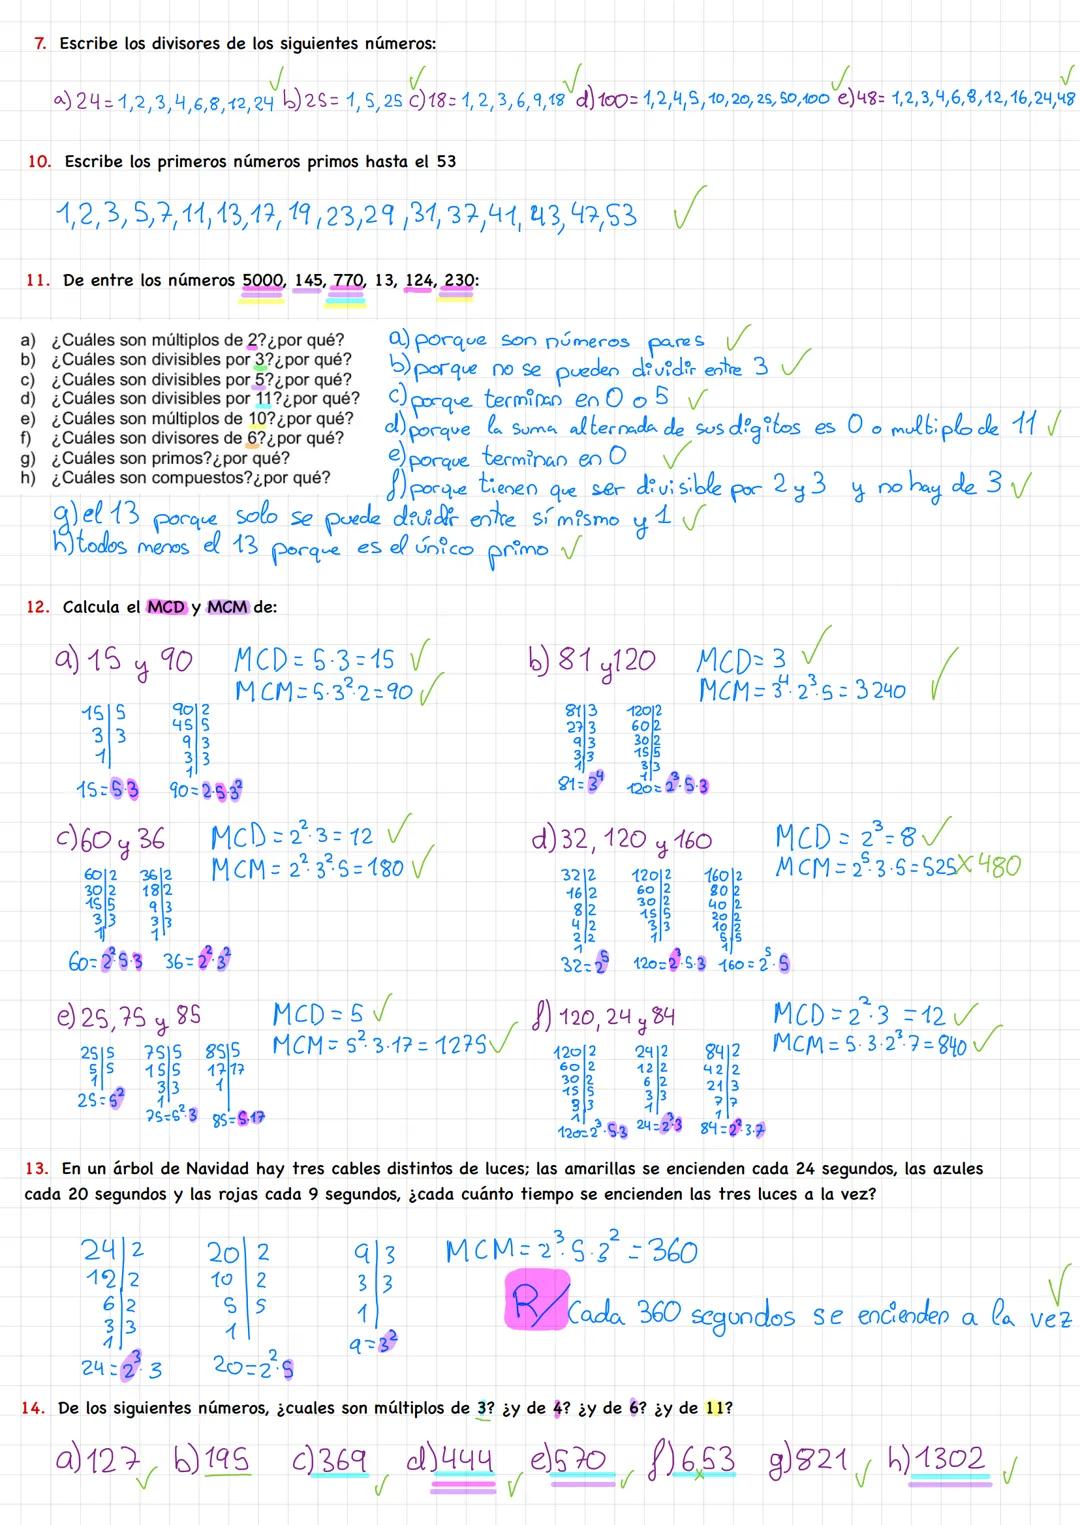 7. Escribe los divisores de los siguientes números:
a) 24=1,2,3,4,6,8,12,24 b) 25=1,5,25 c) 18=1,2,3,6,9,18 d) 100=1,2,4,5,10,20,25,50,100 e) 48=1,2,3,4,6,8,12,16,24,48
10. Escribe los primeros números primos hasta el 53
1,2,3,5,7,11,13,17,19,23,29,31,37,41,43,47,53
11. De entre los números 5000, 145, 770, 13, 124, 230:
a) ¿Cuáles son múltiplos de 2?¿por qué? a) porque son números pares
b) ¿Cuáles son divisibles por 3?¿por qué? b) porque no se pueden dividir entre 3
c) ¿Cuáles son divisibles por 5?¿por qué? c) porque terminan en 0 o 5
d) ¿Cuáles son divisibles por 11?¿por qué? d) porque la suma alternada de sus dígitos es 0 o multiplo de 11
e) ¿Cuáles son múltiplos de 10?¿por qué? e) porque terminan en 0
f) ¿Cuáles son divisores de 6?¿por qué? f) porque tienen que ser divisible por 2 y 3 y no hay de 3
g) ¿Cuáles son primos?¿por qué?
h) ¿Cuáles son compuestos?¿por qué?
g) el 13 porque solo se puede dividir entre sí mismo y 1
h) todos menos el 13 porque es el único primo
12. Calcula el MCD y MCM de:
a) 15 y 90 MCD=5·3=15
MCM=5·3²·2=90
15|5 90|2
3|3 45|5
1| 9|3
3|3
1|
15=5·3 90=2·5·3²
b) 81 y 120 MCD=3
MCM=3⁴·2³·5=3240
81|3 120|2
27|3 60|2
9|3 30|2
3|3 15|5
1| 3|3
1|
81=3⁴ 120=2³·5·3
c) 60 y 36 MCD=2²·3=12
MCM=2²·3²·5=180
60|2 36|2
30|2 18|2
15|5 9|3
3|3 3|3
1| 1|
60=2²·5·3 36=2²·3²
d) 32, 120 y 160 MCD=2³=8
MCM=2⁵·3·5=525 X 480
32|2 120|2 160|2
16|2 60|2 80|2
8|2 30|2 40|2
4|2 15|5 20|2
2|2 3|3 10|2
1 1| 5|5
1|
32=2⁵ 120=2³·5·3 160=2⁵·5
e) 25, 75 y 85 MCD=5
MCM=5²·3·17=1275
25|5 75|5 85|5
5|5 15|5 17|17
1| 3|3 1|
1|
25=5² 75=5²·3 85=5·17
f) 120, 24 y 84 MCD=2²·3=12
MCM=5·3·2³·7=840
120|2 24|2 84|2
60|2 12|2 42|2
30|2 6|2 21|3
15|5 3|3 7|7
3|3 1| 1|
1|
120=2³·5·3 24=2³·3 84=2²·3·7
13. En un árbol de Navidad hay tres cables distintos de luces; las amarillas se encienden cada 24 segundos, las azules
cada 20 segundos y las rojas cada 9 segundos, ¿cada cuánto tiempo se encienden las tres luces a la vez?
24|2 20|2 9|3 MCM=2³·5·3²=360
12|2 10|2 3|3
6|2 5|5 1|
3|3 1|
1|
R/ Cada 360 segundos se encienden a la vez
24=2³·3 20=2²·5 9=3²
14. De los siguientes números, ¿cuales son múltiplos de 3? ¿y de 4? ¿y de 6? ¿y de 11?
a) 127 b) 195 c) 369 d) 444 e) 570 f) 653 g) 821 h) 1302